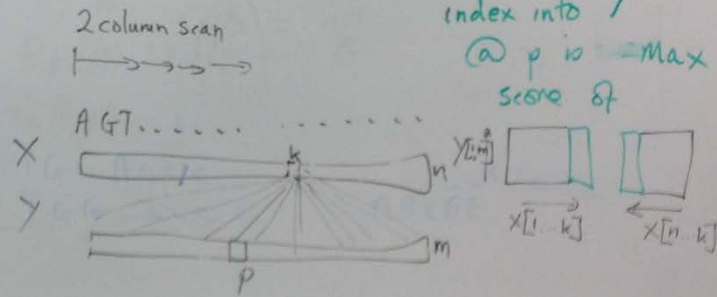 2 column scan
index into
@ p is max
score of
A GT...... .......
X
k
n
Y
m
p
X[1...k]
X[n...k]